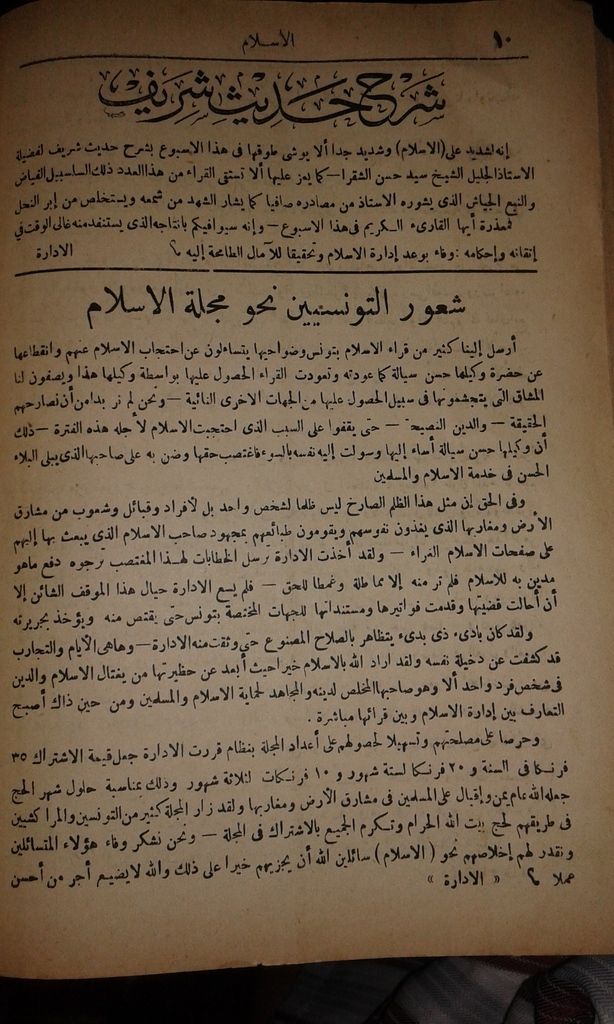 ١٠
الاسلام
شرح حديث شريف
إنه لشديد على (الاسلام) وشديد جدا ألا يوشى طوقها فى هذا الاسبوع بشرح حديث شريف لفضيلة
الاستاذ الجليل الشيخ سيد حسن الشقرا — كما يعز عليها ألا تستقى القراء من هذا العدد ذلك السلسبيل الفياض
والنبع الجياش الذى يشوره الاستاذ من مصادره صافيا كما يشار الشهد من شمعه ويستخلص من إبر النحل
فمعذرة أيها القارىء الكريم فى هذا الاسبوع — وإنه سيوافيكم بانتاجه الذى يستنفد منه غالى الوقت فى
إتقانه وإحكامه : وفاء بوعد إدارة الاسلام وتحقيقا للآمال الطامحة إليه
الادارة
شعور التونسيين نحو مجلة الاسلام
أرسل إلينا كثير من قراء الاسلام بتونس وضواحيها يتساءلون عن احتجاب الاسلام عنهم وانقطاعها
عن حضرة وكيلها حسن سيالة كما عودته وتعودت القراء الحصول عليها بواسطة وكيلها هذا ويصفون لنا
المشاق التى يتجشمونها فى سبيل الحصول عليها من الجهات الاخرى النائية — ونحن لم نر بدا من أن نصارحهم
الحقيقة — والدين النصيحة — حتى يقفوا على السبب الذى احتجبت الاسلام لأجله هذه الفترة — ذلك
أن وكيلها حسن سيالة أساء إليها وسولت إليه نفسه بالسوء فاغتصب حقها وضن به على صاحبها الذى يبلى البلاء
الحسن فى خدمة الاسلام والمسلمين
وفى الحق إن مثل هذا الظلم الصارخ ليس ظلما لشخص واحد بل لأفراد وقبائل وشعوب من مشارق
الأرض ومغاربها الذى يغذون نفوسهم ويقومون طبائعهم بمجهود صاحب الاسلام الذى يبعث بها إليهم
على صفحات الاسلام الغراء — ولقد أخذت الادارة ترسل الخطابات لهذا المغتصب ترجوه دفع ماهو
مدين به للاسلام فلم تر منه إلا مماطلة وغمطا للحق — فلم يسع الادارة حيال هذا الموقف الشائن إلا
أن أحالت قضيتها وقدمت فواتيرها ومستنداتها للجهات المختصة بتونس حتى يقتص منه ويؤخذ بجريرته
ولقد كان بادىء ذى بدىء يتظاهر بالصلاح المصنوع حتى وثقت منه الادارة — وهاهى الأيام والتجارب
قد كشفت عن دخيلة نفسه ولقد اراد الله بالاسلام خيرا حيث أبعد عن حظيرتها من يغتال الاسلام والدين
فى شخص فرد واحد ألا وهو صاحبها المخلص لدينه والمجاهد لحماية الاسلام والمسلمين ومن حين ذاك أصبح
التعارف بين إدارة الاسلام وبين قرائها مباشرة .
وحرصا على مصلحتهم وتسهيلا لحصولهم على أعداد المجلة بنظام قررت الادارة جعل قيمة الاشتراك ٣٥
فرنكا فى السنة و ٢٠ فرنكا لستة شهور و ١٠ فرنكات لثلاثة شهور وذلك بمناسبة حلول شهر الحج
جعله الله عام يمن وإقبال على المسلمين فى مشارق الأرض ومغاربها ولقد زار المجلة كثير من التونسيين والمراكشيين
فى طريقهم لحج بيت الله الحرام وتكرم الجميع بالاشتراك فى المجلة — ونحن نشكر وفاء هؤلاء المتسائلين
ونقدر لهم إخلاصهم نحو (الاسلام) سائلين الله أن يجزيهم خيرا على ذلك والله لا يضيع أجر من أحسن
عملا « الادارة »